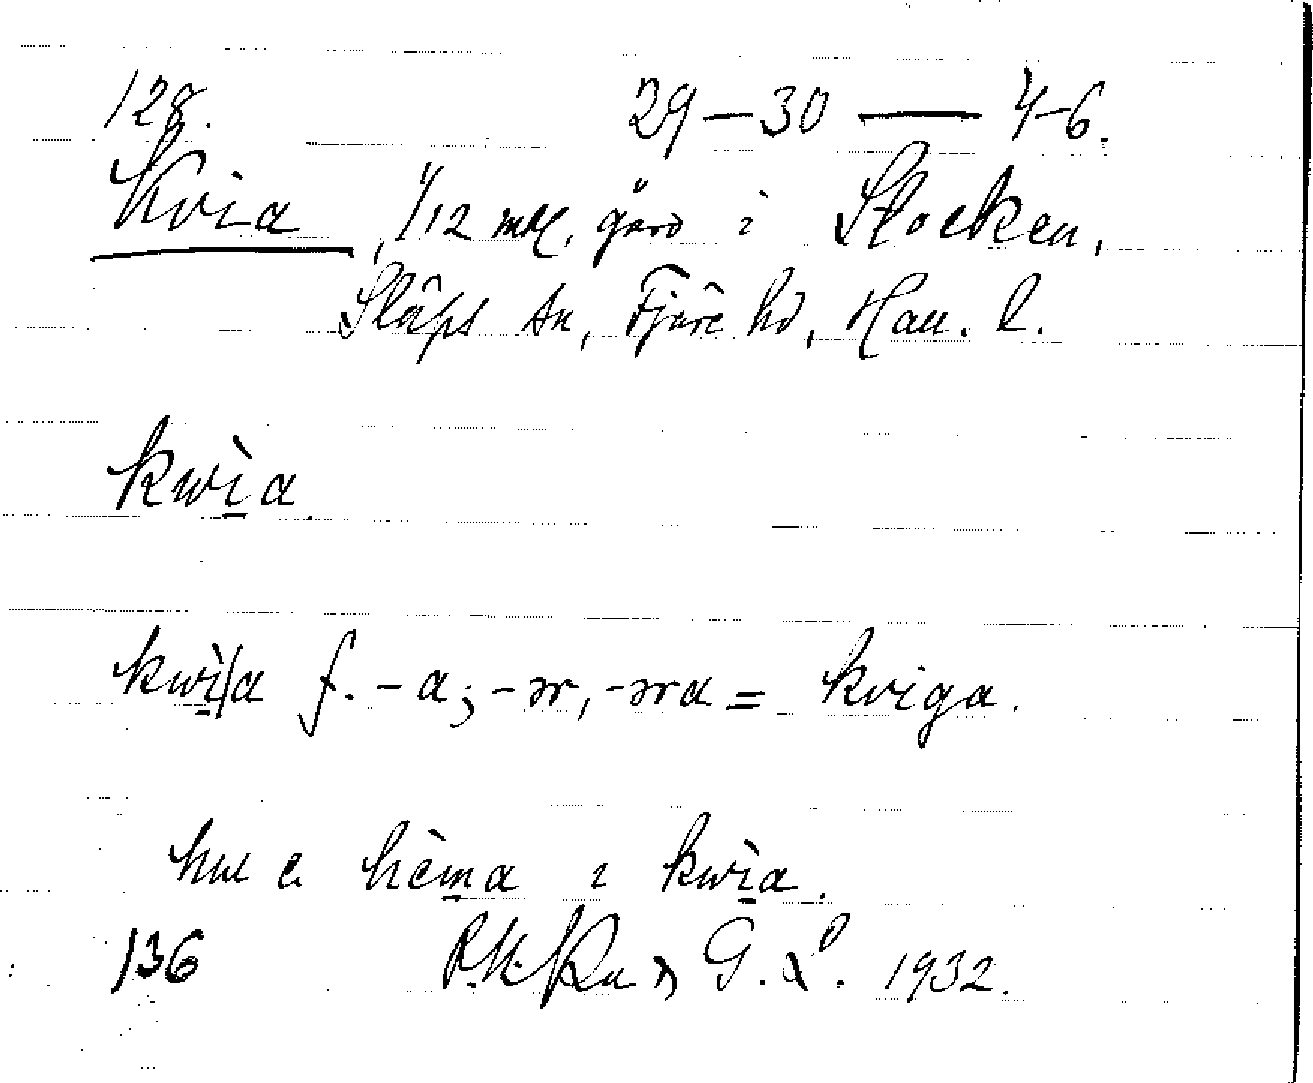 128. 29–30 — 4-6.
Kvia, 1/12 mtl. gård i Stocken,
Släps sn, Fjäre hd, Hall. l.
kwìa
kwì|a f. -a; -ər, -əra = kviga.
hu e hèma i kwìa.
136 G. L. 1932.